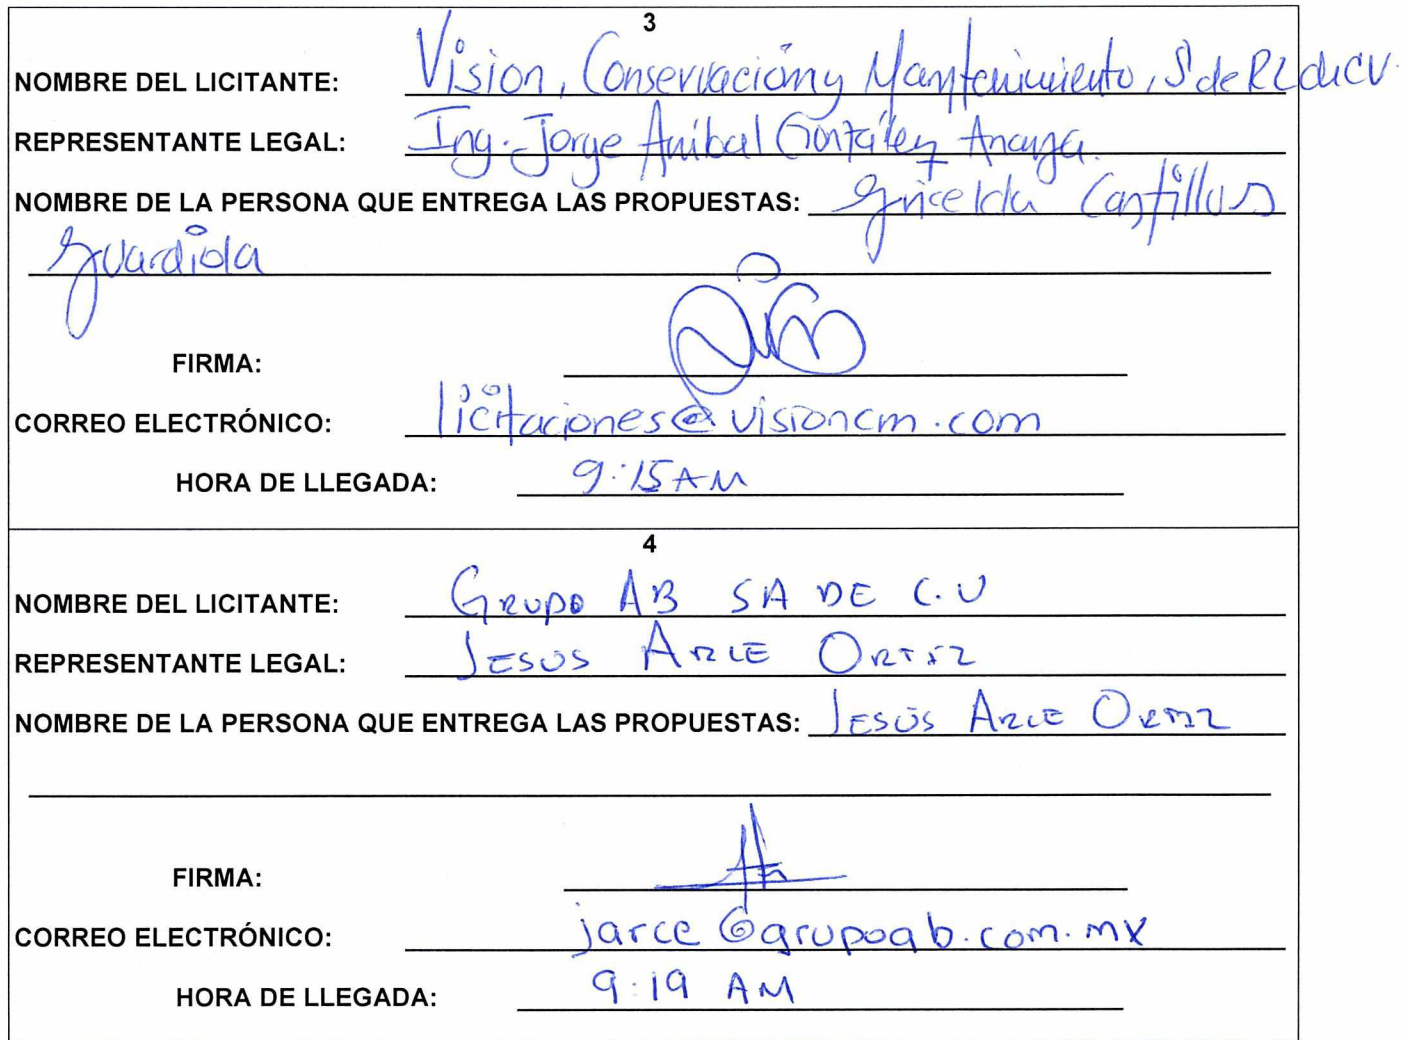 3
NOMBRE DEL LICITANTE: Vision, Conservación y Mantenimiento, S de RL de CV.
REPRESENTANTE LEGAL: Ing. Jorge Anibal González Anaya.
NOMBRE DE LA PERSONA QUE ENTREGA LAS PROPUESTAS: Gricelda Cantillos
Guardiola
FIRMA:
CORREO ELECTRÓNICO: licitaciones@visioncm.com
HORA DE LLEGADA: 9:15 AM
4
NOMBRE DEL LICITANTE: GRUPO AB SA DE C.V
REPRESENTANTE LEGAL: JESUS ARCE ORTIZ
NOMBRE DE LA PERSONA QUE ENTREGA LAS PROPUESTAS: JESÚS ARCE ORTIZ
FIRMA:
CORREO ELECTRÓNICO: jarce@grupoab.com.mx
HORA DE LLEGADA: 9:19 AM